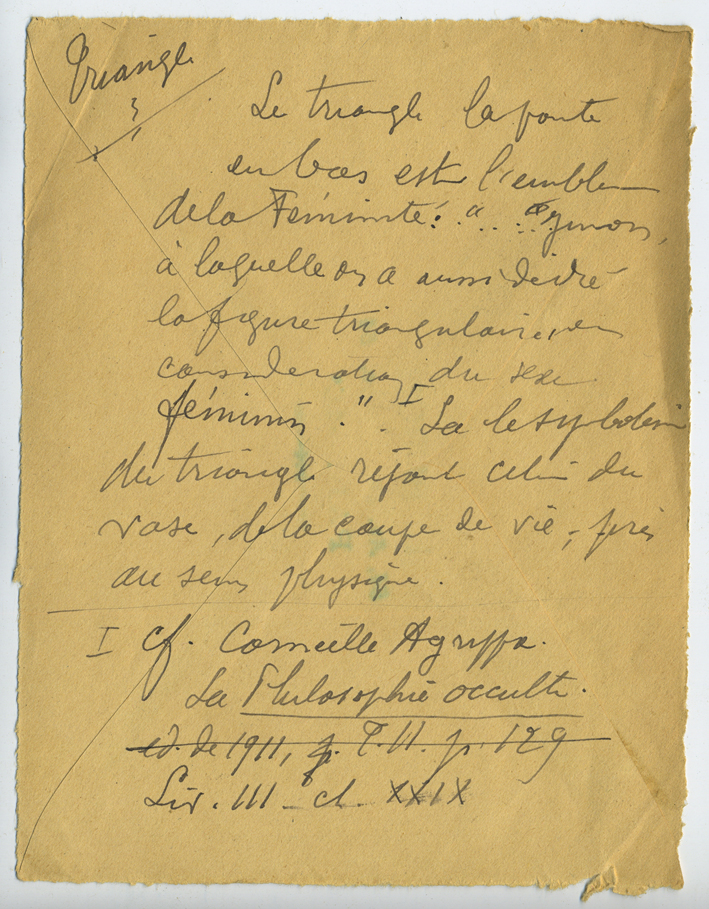 Triangle
Le triangle la pointe
en bas est l'emblem
de la Féminité : "... Junon,
à laquelle on a aussi dédié
la figure triangulaire, en
considération du sexe
féminin." I La le symbolism
du triangle rejoint celui du
vase, de la coupe de vie, pris
au sens physique.
I cf. Corneille Agrippa.
La Philosophie occulte.
ed. de 1911, p. T. II. p. 129
Liv. III - ch. XXIX